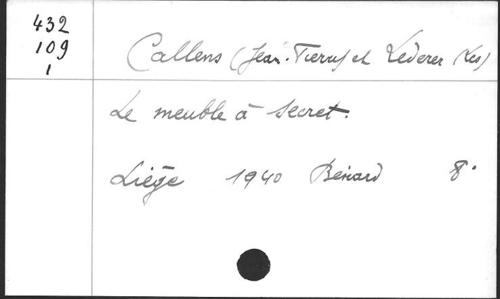 432
109
1
Callens (Jean-Pierre) et Lederer (Les)
Le meuble à secret.
Liége 1940 Bénard 8°